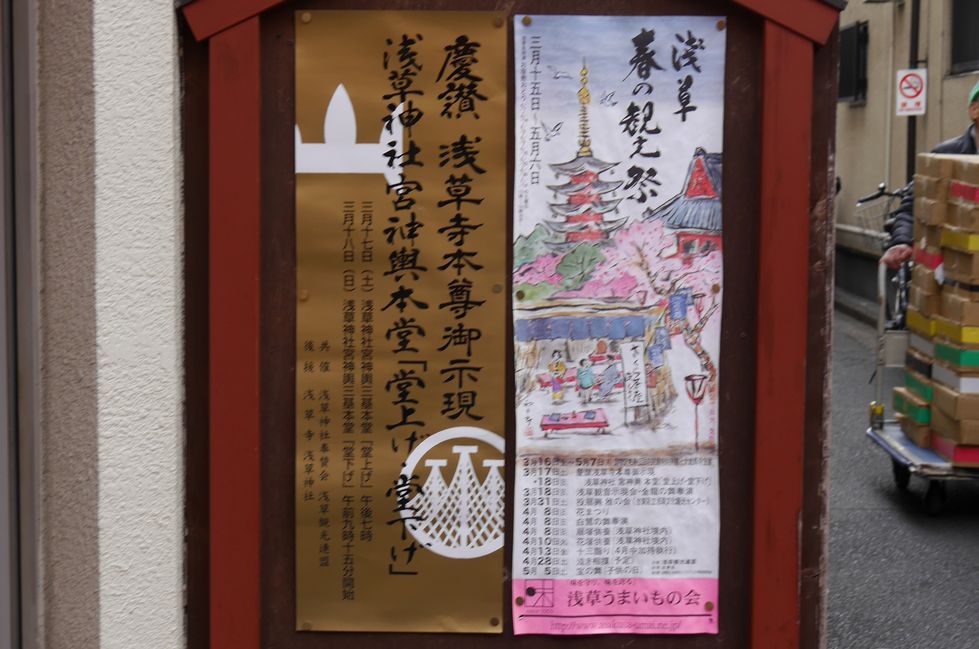 浅草
春の観光祭
三月十五日~五月六日
さくら渓流
3月17日
・18日
浅草神社 宮神輿 本堂「堂上げ・堂下げ」
3月18日 浅草観音示現会・金龍の舞奉演
3月31日
4月 8日 花まつり
4月 8日 白鷺の舞奉演
4月 8日
4月10日 花塚供養(浅草神社境内)
4月13日 十三詣り
4月28日 泣き相撲(予定)
5月 5日 宝の舞(子供の日)
「味を守り、味を誇る」
浅草うまいもの会
慶讃 浅草寺本尊御示現
浅草神社宮神輿本堂「堂上げ・堂下げ」
三月十七日(土) 浅草神社宮神輿三基本堂「堂上げ」午後七時
三月十八日(日) 浅草神社宮神輿三基本堂「堂下げ」午前九時十五分開始
共催 浅草神社奉賛会 浅草観光連盟
後援 浅草寺 浅草神社